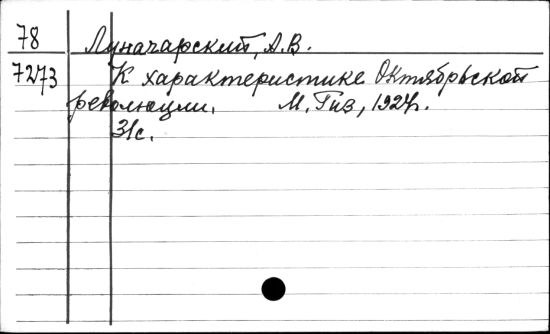 78 Луначарский, А.В.
7273 К характеристике Октябрьской
революции. М. Гиз, 1924.
31с.